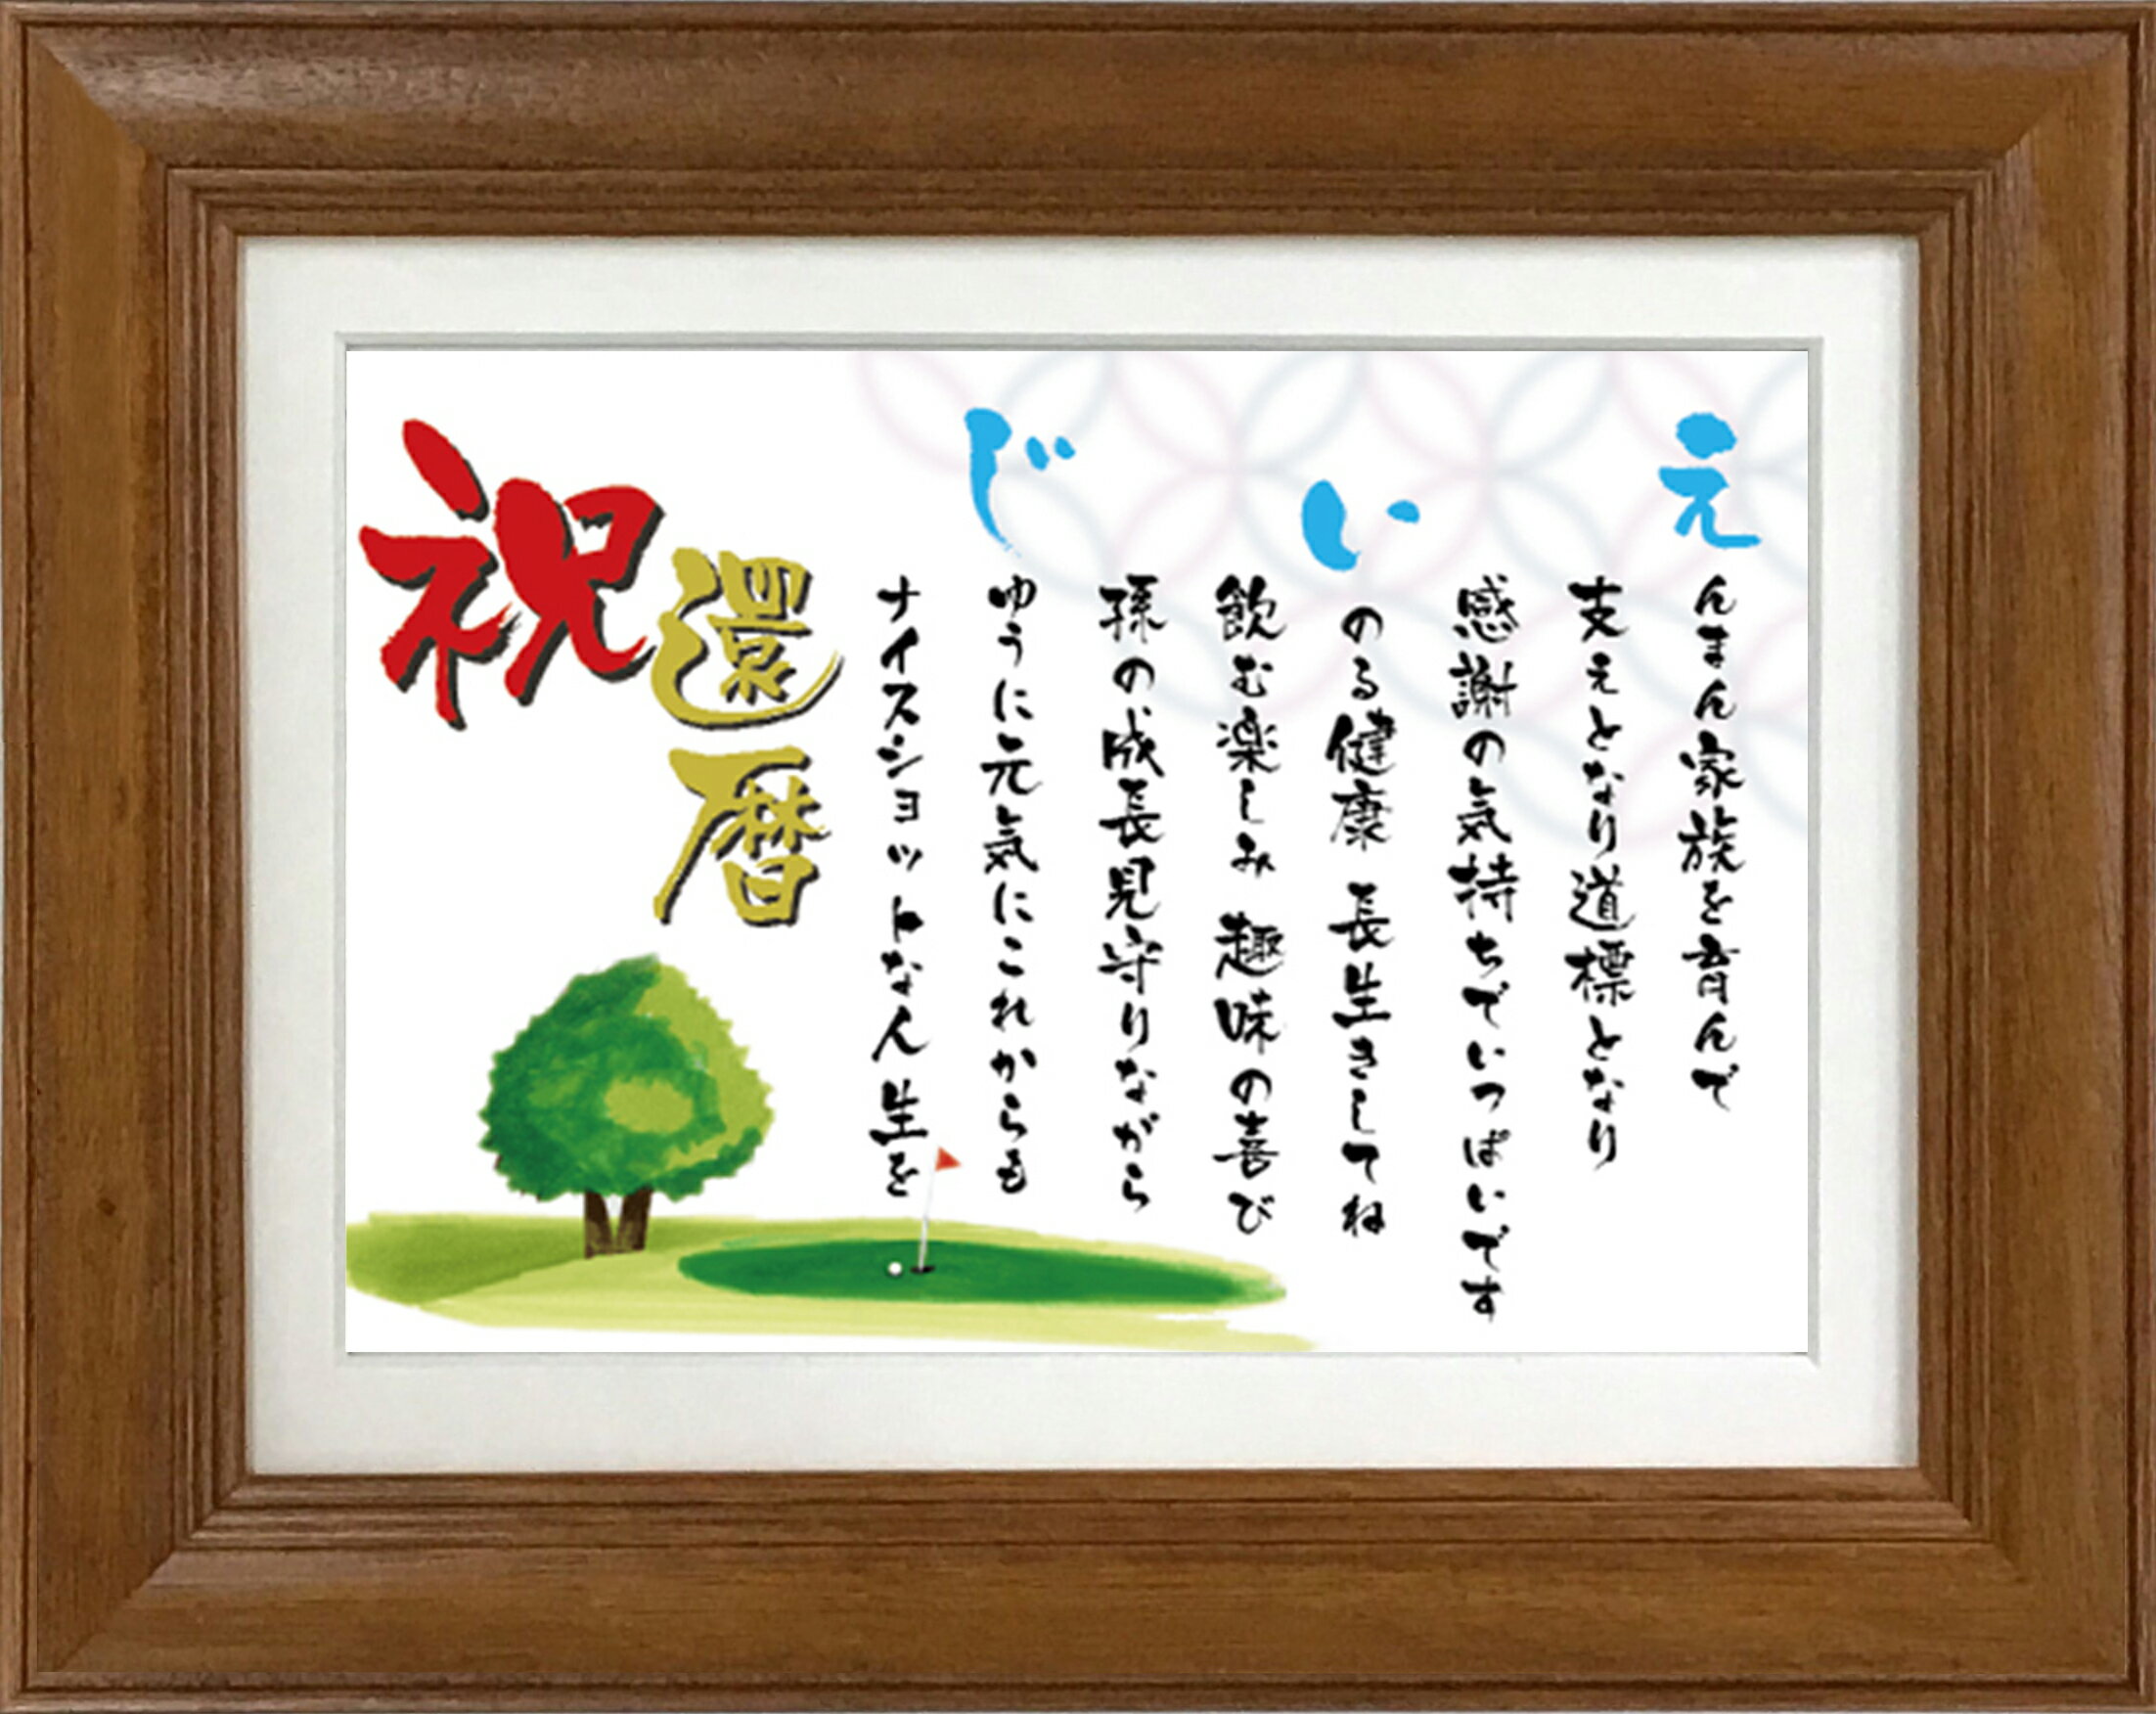 えんまん家族を育んで
支えとなり道標となり
感謝の気持ちでいっぱいです
いのる健康 長生きしてね
飲む楽しみ 趣味の喜び
孫の成長見守りながら
じゆうに元気にこれからも
ナイスショットな人生を
祝
還暦